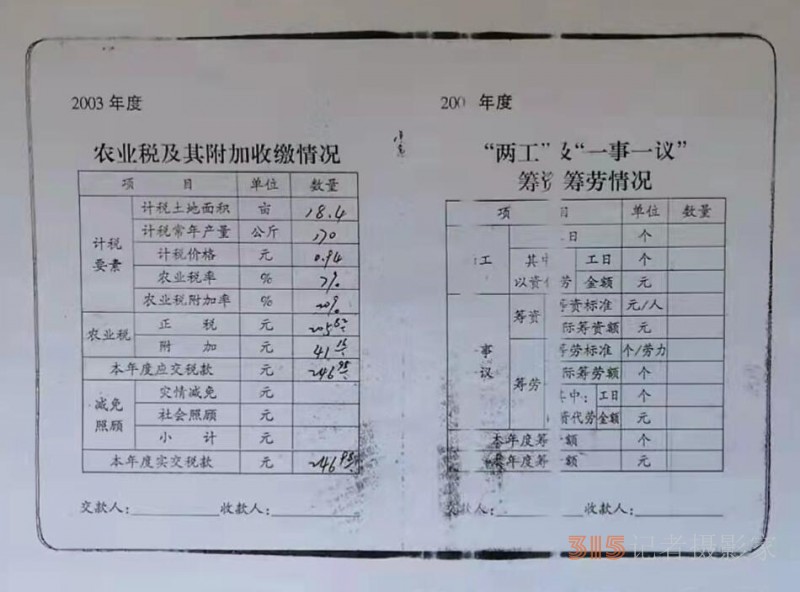 2003 年度
农业税及其附加收缴情况
项 目 单位 数量
计税要素 计税土地面积 亩 18.4
计税常年产量 公斤 170
计税价格 元 0.94
农业税率 % 7%
农业税附加率 % 20%
农业税 正 税 元
附 加 元
本年度应交税款 元
减免照顾 灾情减免 元
社会照顾 元
小 计 元
本年度实交税款 元
交款人: 收款人:
200 年度
“两工”及“一事一议”
筹资筹劳情况
项 目 单位 数量
工 工日 个
其中 工日 个
以资代劳 金额 元
事议 筹资 筹资标准 元/人
际筹资额 元
筹劳 筹劳标准 个/劳力
际筹劳额 个
其中: 工日 个
资代劳金额 元
本年度筹 额 个
本年度筹 额 元
交款人: 收款人:
315记者摄影家